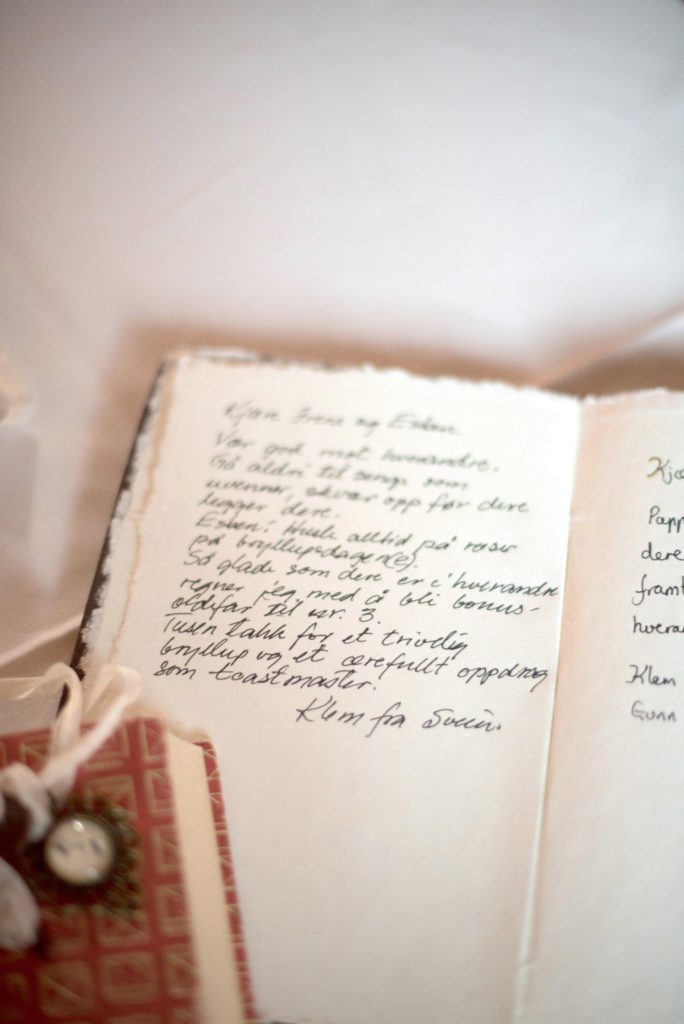 Kjære Irene og Esben
Vær god mot hverandre.
Gå aldri til sengs som
uvenner, skvær opp før dere
legger dere.
Esben! Husk alltid på roser
på bryllupsdagen(e).
Så glade som dere er i hverandre
regner jeg med å bli bonus-
oldefar til nr. 3.
Tusen takk for et trivelig
bryllup og et ærefullt oppdrag
som toastmaster.
Klem fra Svein.
Kjæ
Papp
dere
framt
hvera
Klem
Gunn